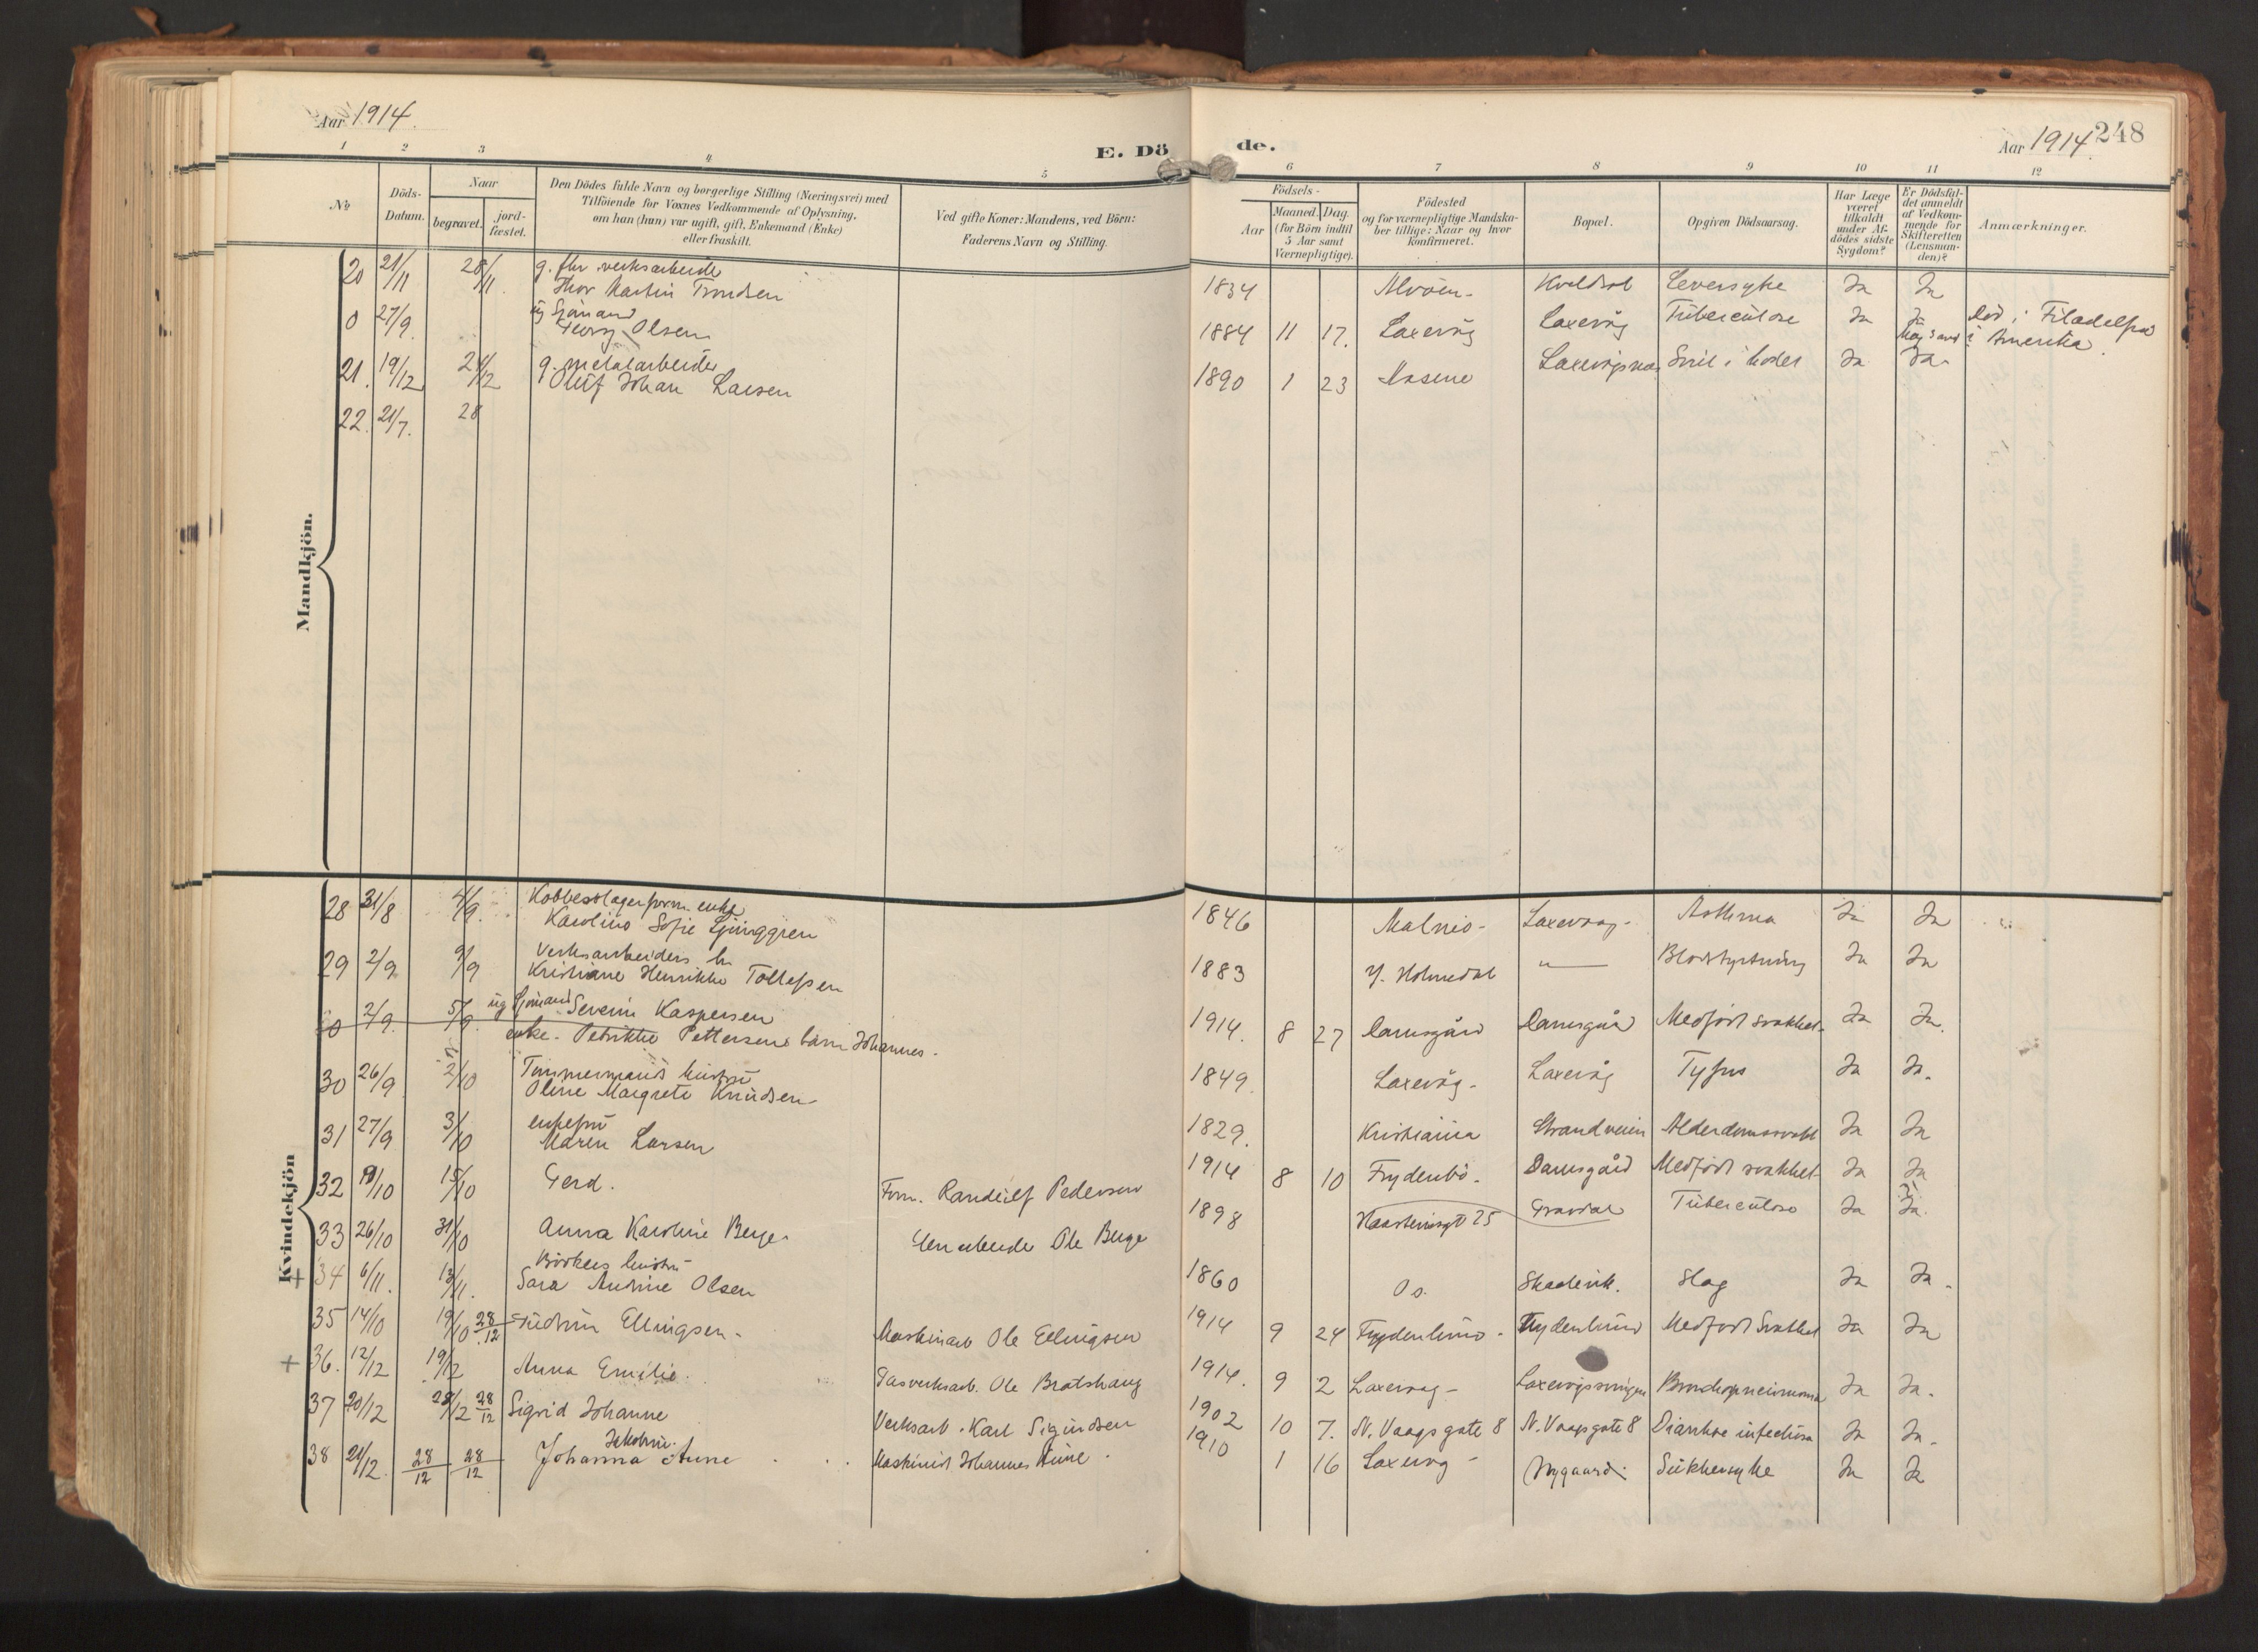 Aar 1914.
E. Dö
de.
Aar 1914.
248
1 2 3 4 5 6 7 8 9 10 11 12
№
Döds-Datum.
Naar
begravet.
jord-fæstet.
Den Dödes fulde Navn og borgerlige Stilling (Næringsvei) med
Tilföiende for Voxnes Vedkommende af Oplysning,
om han (hun) var ugift, gift, Enkemand (Enke)
eller fraskilt.
Ved gifte Koner: Mandens, ved Börn:
Faderens Navn og Stilling.
Födsels-
Aar
Maaned. Dag.
(for Börn indtil
5 Aar samt
Værnepligtige).
Födested
og for værnepligtige Mandska-
ber tillige: Naar og hvor
konfirmeret.
Bopæl.
Opgiven Dödsaarsag.
Har Læge
været
tilkaldt
under Af-
dödes sidste
Sygdom?
Er Dödsfal-
det anmeldt
af Vedkom-
mende for
Skifteretten
(Lensman-
den)?
Anmærkninger.
Mandkjön.
20 21/11 28/11 g. fhv. verksarbeide
Thor Martin Trondsen 1834 Alvöen- Leversyke Ja Ja
0 27/9. ug Sjömand
Georg Olsen 1884 11 17. Laxevåg Laxevåg Tuberculose Ja Ja Död i Filadelfia
i Amerika.
21. 19/12 24/12 g. metalarbeider
Oluf Johan Larsen 1890 1 23 Ja Ja
22. 21/7. 28
Kvindekjön
28 31/8 4/9. Kobberslager enke
Karoline Sofie Ljunggren 1846 Malmö- Laxevaag- Asthma Ja Ja
29 2/9 9/9 Verksarbeiders h.
Kristiane Henrikke Tollefsen 1883 Y. Holmedal —"— Blodstyrtning Ja Ja
2/9. 5/9. ug Sjömand Severin Kaspersen
enke. Petrikke Pettersens barn Johannes- 1914. 8 27 Damsgård Damsgård Medfödt svakhet- Ja Ja.
30 26/9 2/10 Tømmermands hustru
Oline Margrete Knudsen- 1849. Laxevåg- Laxevåg Tyfus Ja Ja.
31 27/9 3/10 enkefru
Maren Larsen 1829. Kristiania Strandveien Alderdomssvakh Ja Ja
32 /10 15/10 Gerd. Form. Randulf Pedersen 1914 8 10 Frydenbö. Damsgård Medfödt svakhet- Ja Ja
33 26/10 31/10 Anna Karoline Berge. Ole Berge 1898 25 Gravdal Tuberculose Ja Ja.
+ 34 6/11. 13/11. hustru
Sara Andrine Olsen 1860 Os. Skadevik. Slag Ja Ja.
35 14/10 19/10 28/12 Gudrun Ellingsen- Maskinarb Ole Ellingsen 1914 9 24 Frydenlund- Frydenlund Medfödt Svakhet Ja Ja
+ 36. 12/12 19/12 Anna Emilie. Gasverksarb. Ole Bratshaug 1914. 9 2 Laxevaag- Laxevågsvingen Bronchopneumonia Ja Ja.
37 20/12 28/12 28/12 Sigrid Johanne Verksarb. Karl Sigurdsen 1902 10 7. N. Vaagsgate 8 N. Vaagsgate 8 Diarrhoe infectiosa Ja Ja.
38 21/12. 28/12 28/12 Jakobine
Johanna Aune Maskinist Johannes Aune. 1910 1 16 Laxevåg- Nygaard. Sukkersyke Ja Ja